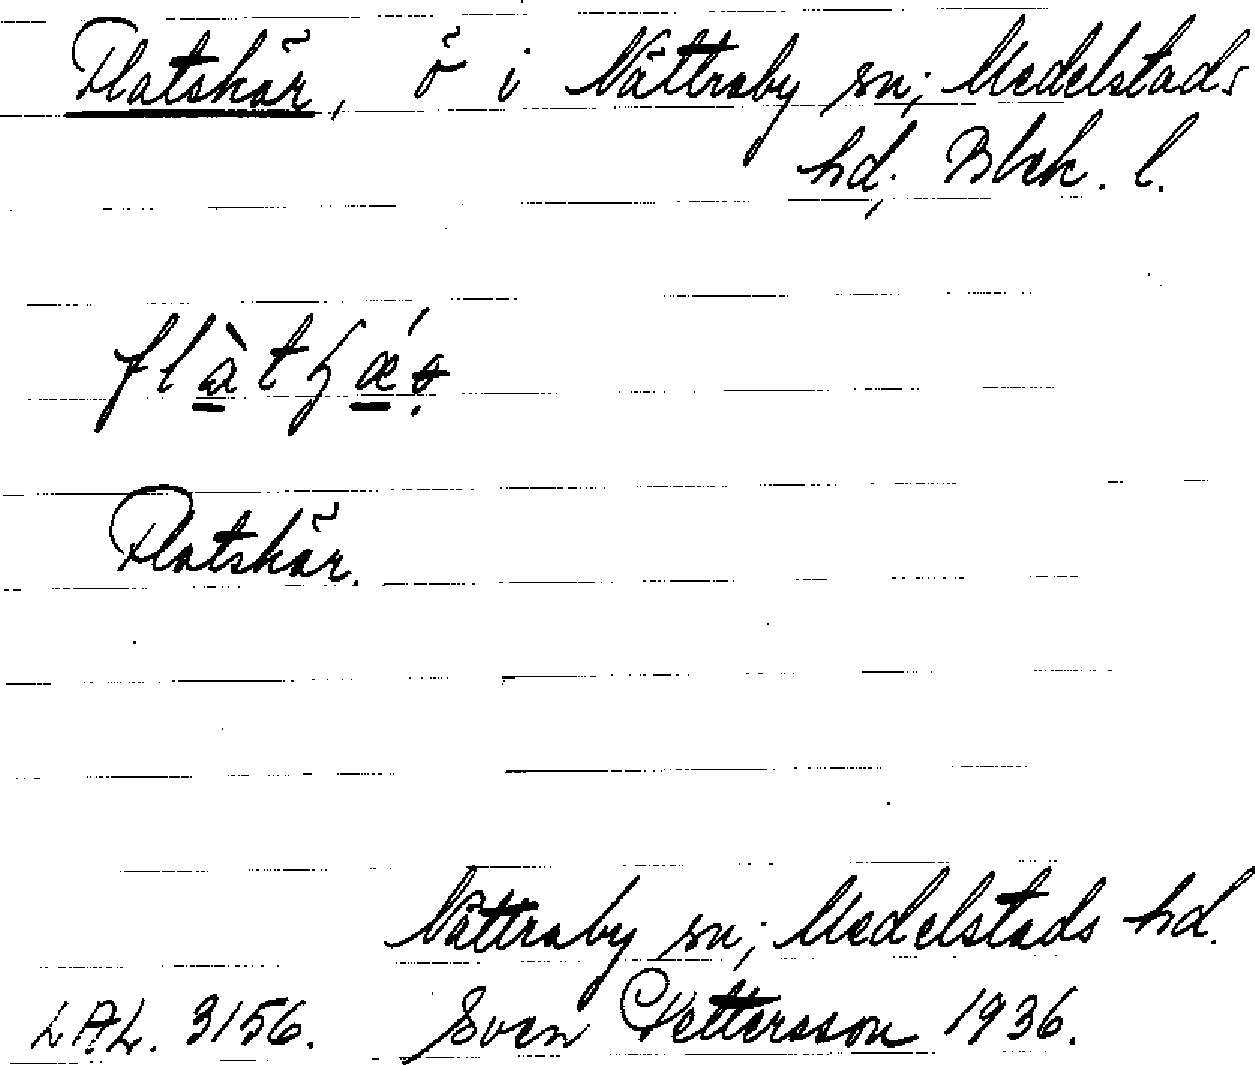 Flatskär, ö i Nättraby sn; Medelstads
hd; Blek. l.
Flatskär.
Nättraby sn; Medelstads hd.
L.A.L. 3156. Sven Pettersson 1936.